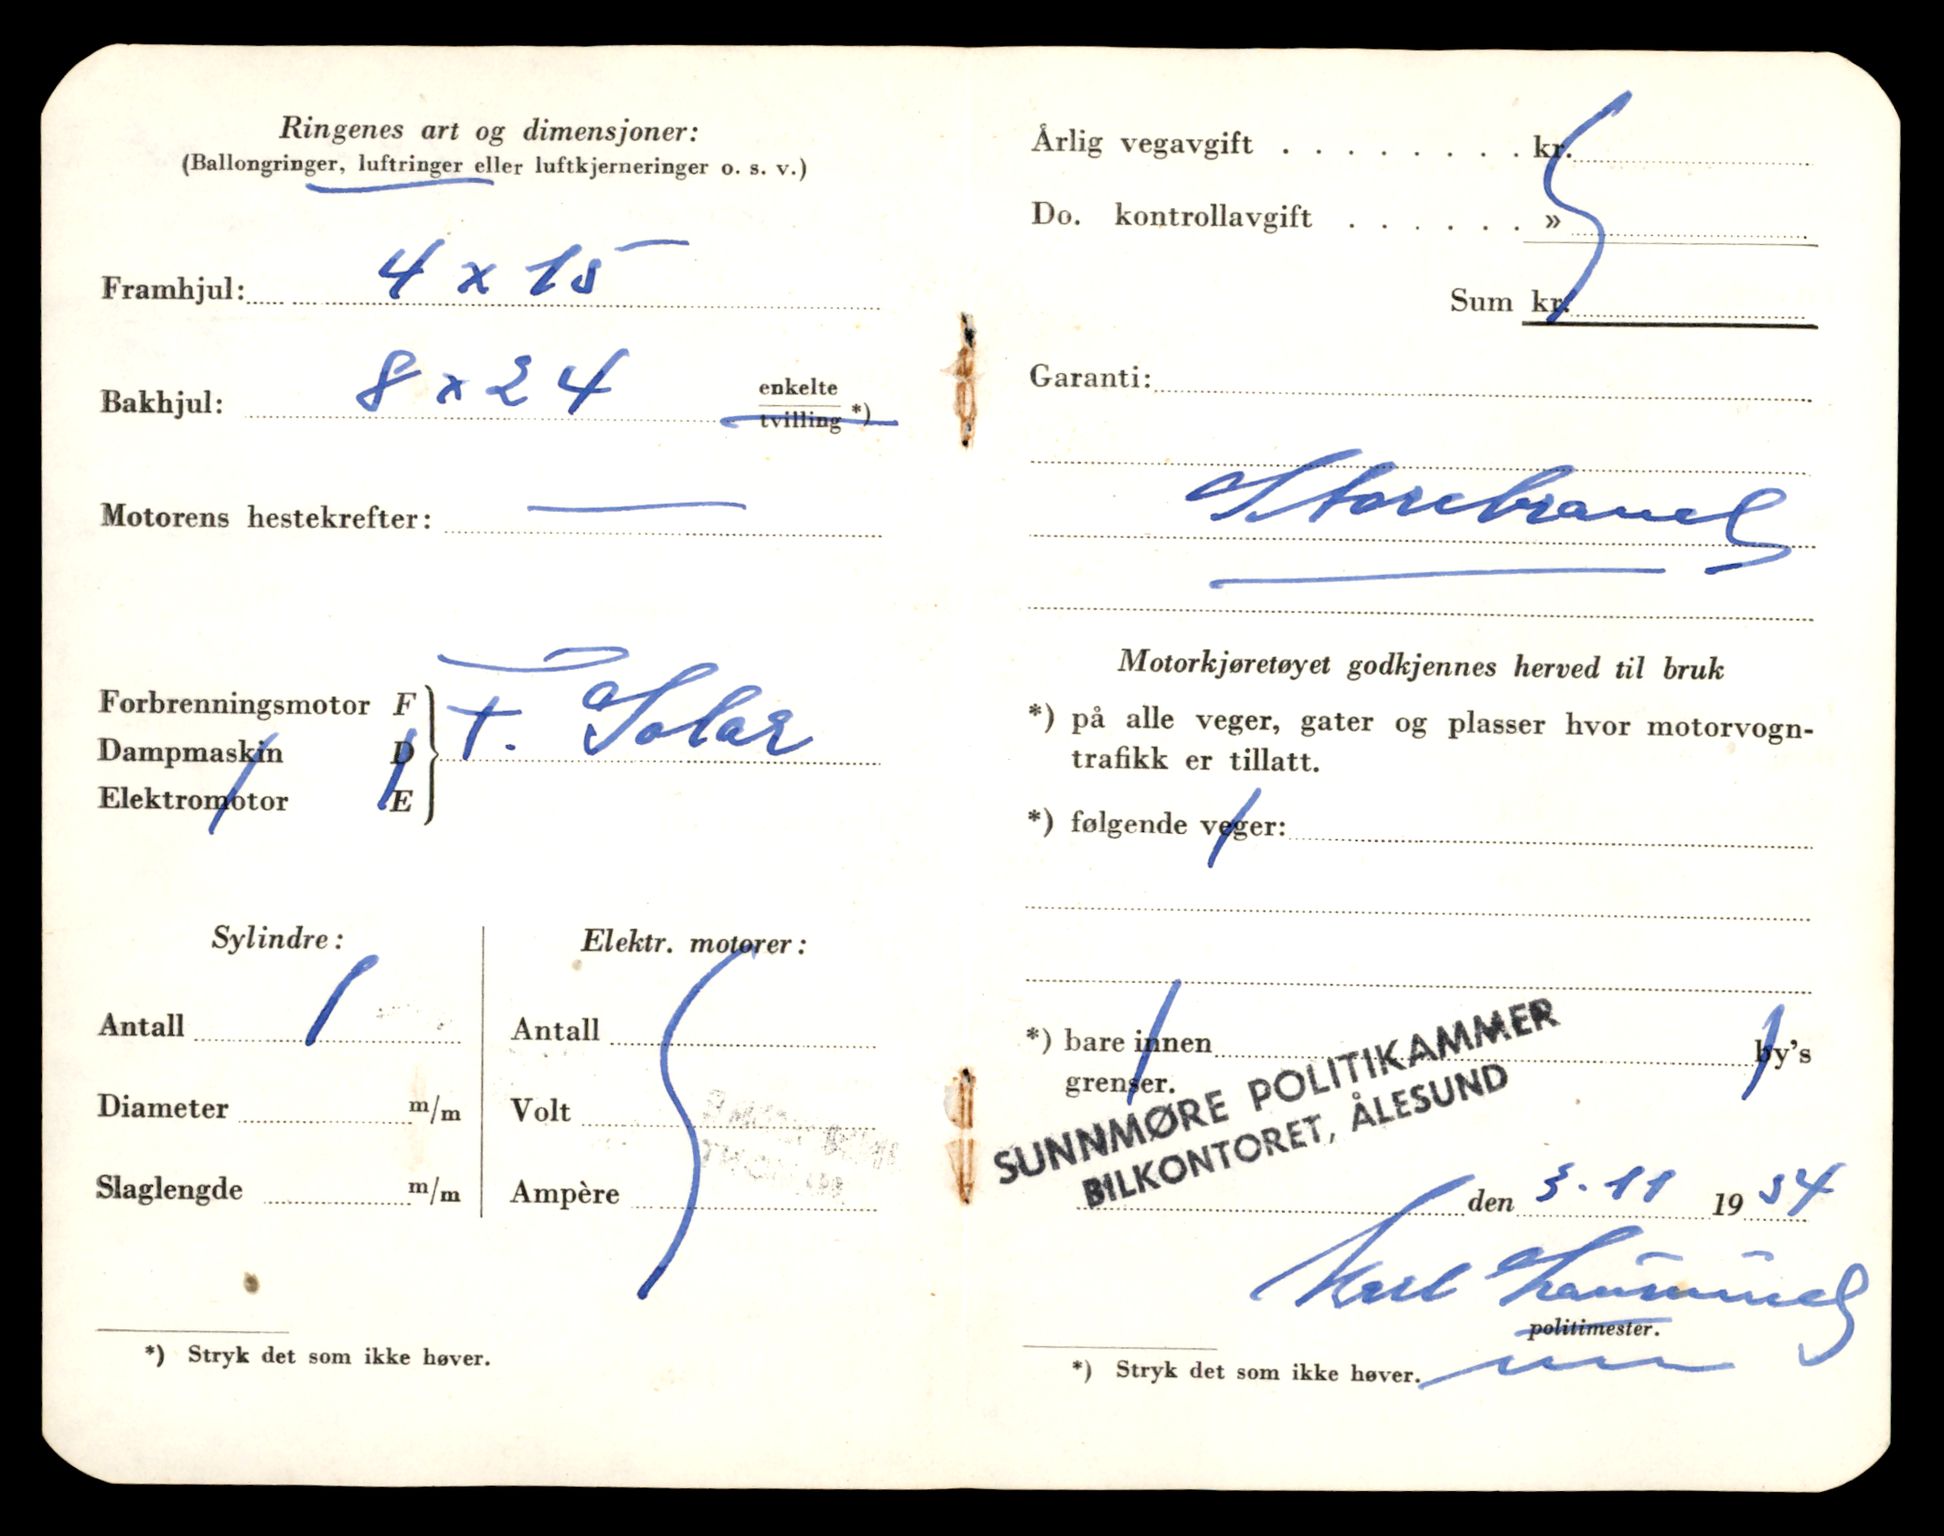 Ringenes art og dimensjoner:
(Ballongringer, luftringer eller luftkjerneringer o. s. v.)
Framhjul: 4 x 15
Bakhjul: 8 x 24 enkelte
tvilling *)
Motorens hestekrefter:
Forbrenningsmotor F
Dampmaskin D
Elektromotor E
F. Solar
Sylindre:
Antall
Diameter m/m
Slaglengde m/m
Elektr. motorer:
Antall
Volt
Ampère
*) Stryk det som ikke høver.
Årlig vegavgift . . . . . . . . kr.
Do. kontrollavgift . . . . . . »
Sum kr.
Garanti:
Storebrand
Motorkjøretøyet godkjennes herved til bruk
*) på alle veger, gater og plasser hvor motorvogn-
trafikk er tillatt.
*) følgende veger:
*) bare innen by's
grenser.
SUNNMØRE POLITIKAMMER
BILKONTORET, ÅLESUND
den 3.11 1954
Karl
politimester.
*) Stryk det som ikke høver.